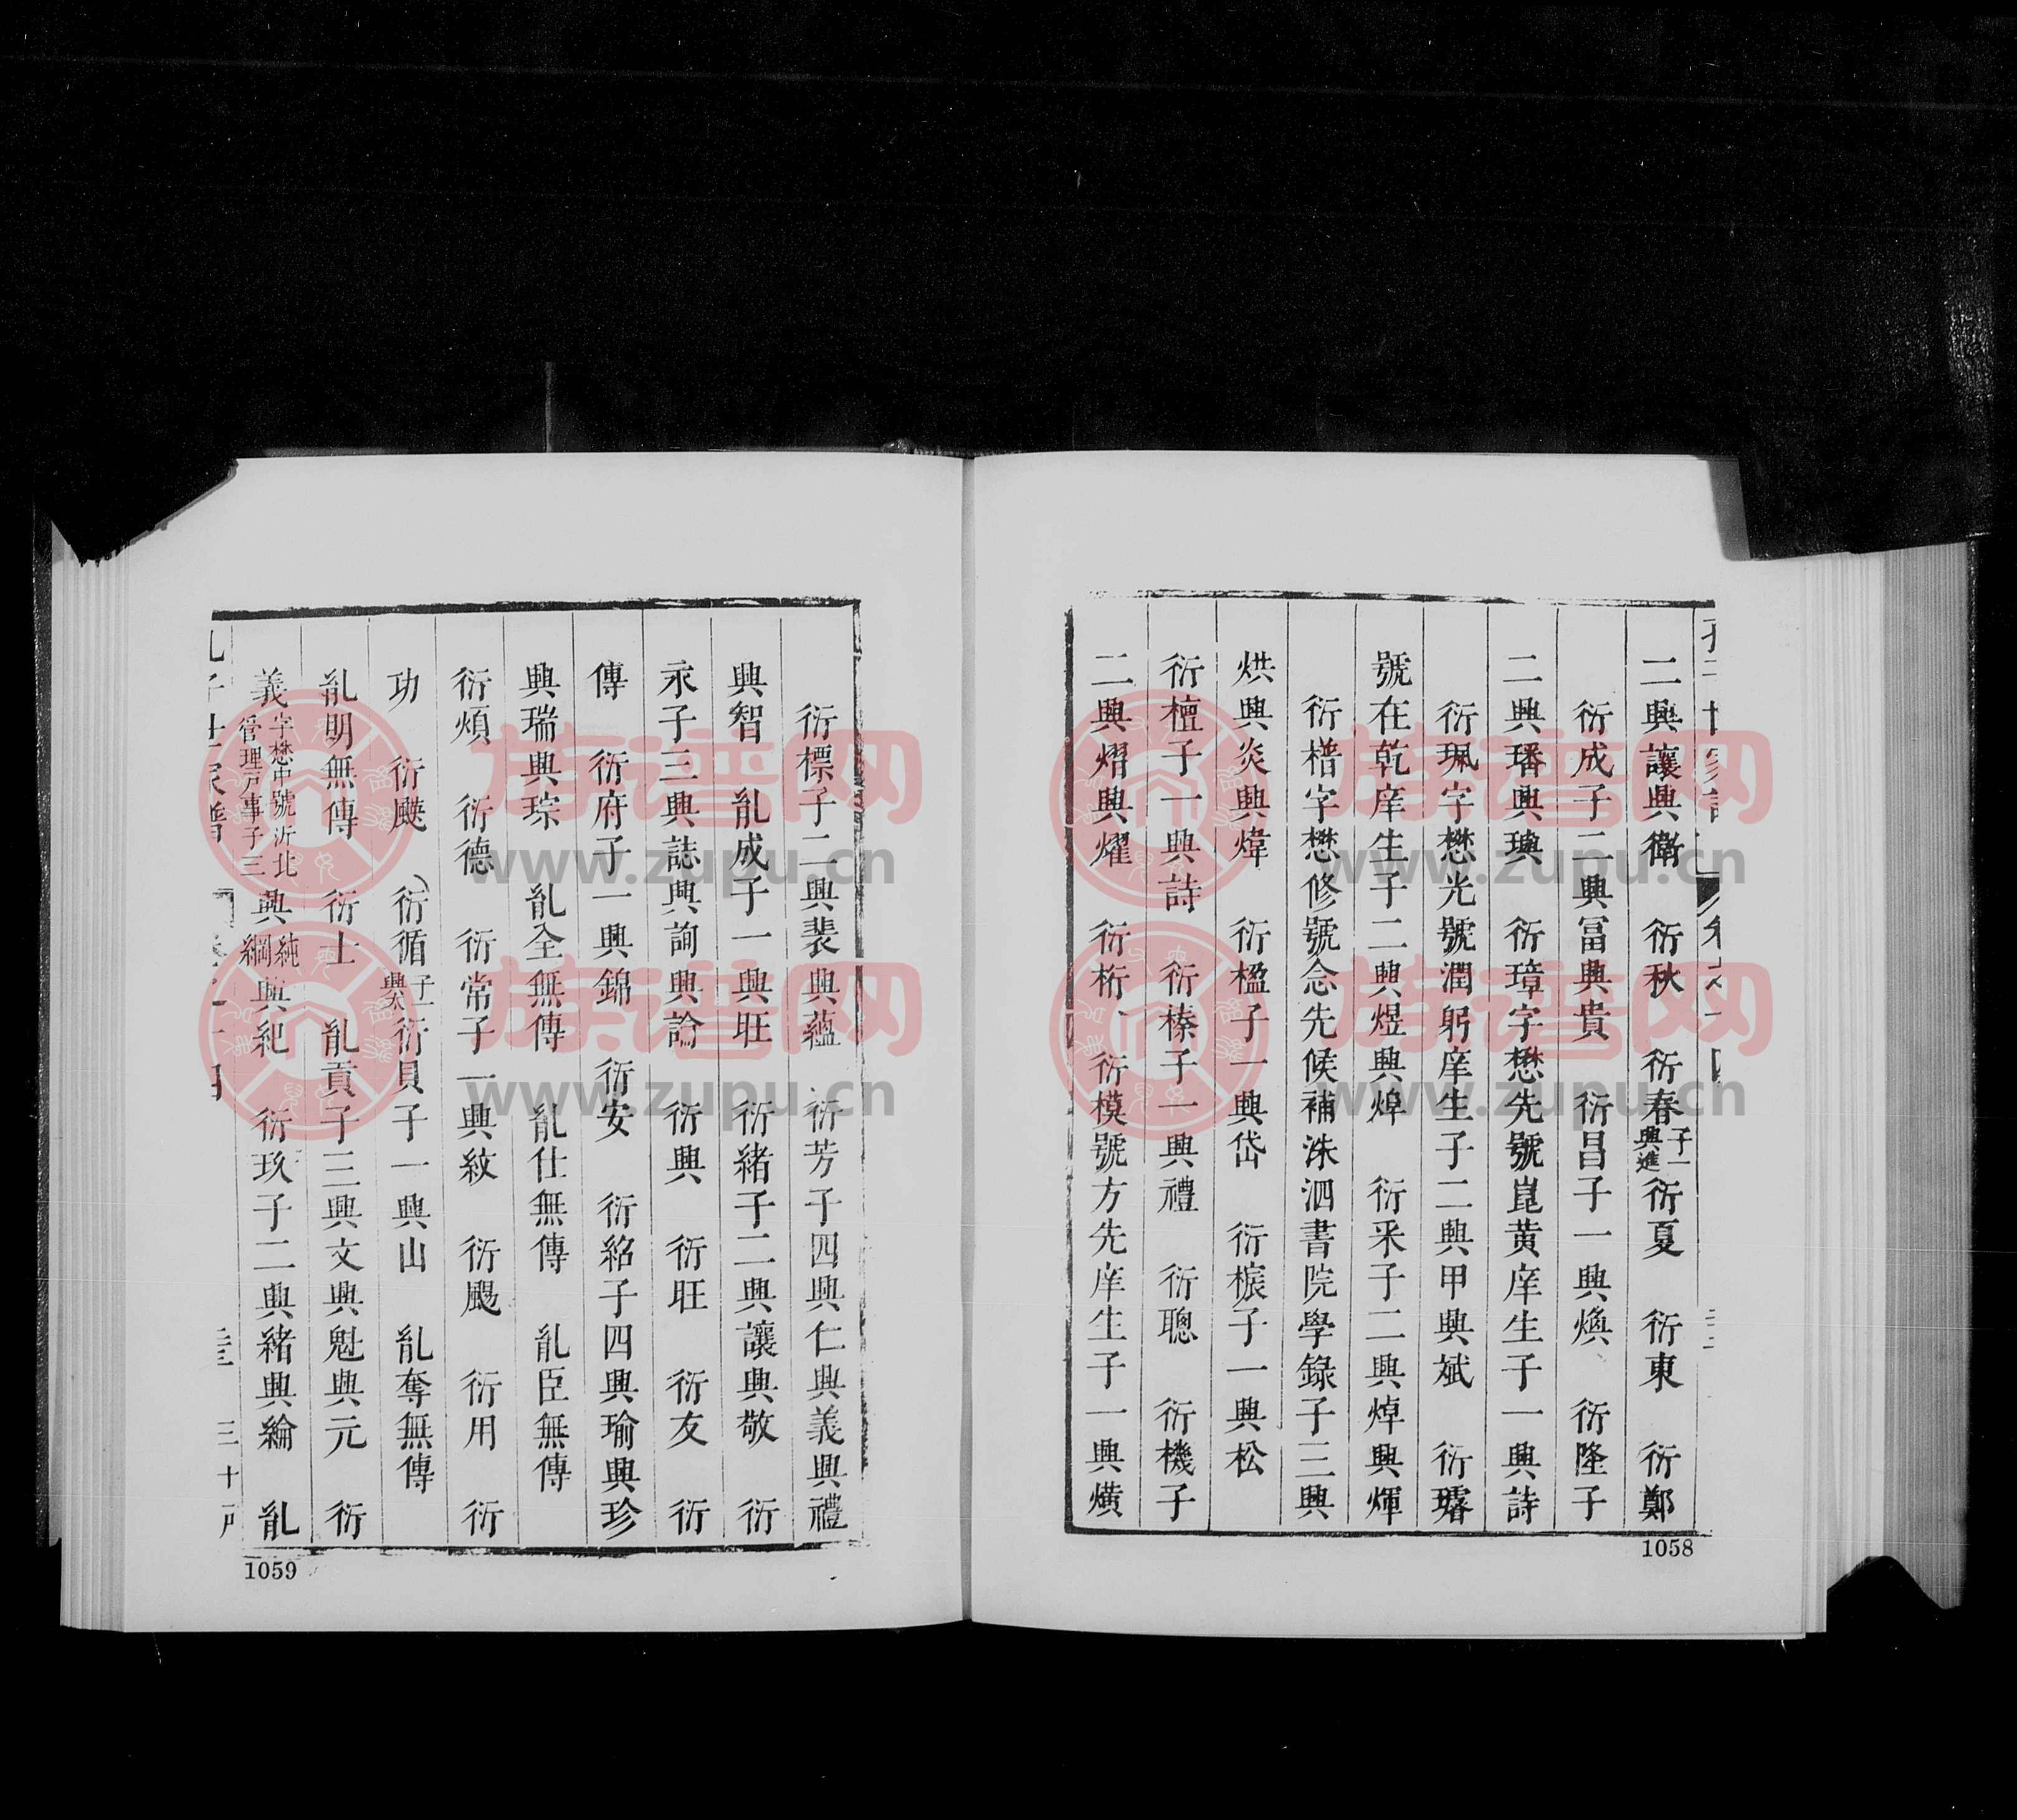 二興讓興衛　衍秋　衍春子一興進衍夏　衍東　衍鄭
衍成子二興冨興貴　衍昌子一興煥　衍隆子
二興璠興璵　衍璋字懋先號崑黄庠生子一興詩
衍珮字懋光號潤躬庠生子二興甲興斌　衍璿
號在乾庠生子二興煜興焯　衍釆子二興焯興煇
衍楷字懋修號念先候補洙泗書院學録子三興
烘興炎興煒　衍楹子一興岱　衍榱子一興松
衍檀子一興詩　衍榛子一興禮　衍聰　衍機子
二興熠興燿　衍桁　衍模號方先庠生子一興熿
1058
衍標子二興裴興蘊　衍芳子四興仁興義興禮
興智　胤成子一興旺　衍緒子二興讓興敬　衍
永子三興誌興詢興論　衍興　衍旺　衍友　衍
傳　衍府子一興錦　衍安　衍紹子四興瑜興珍
興瑞興琮　胤全無傳　胤仕無傳　胤臣無傳
衍煩　衍德　衍常子一興紋　衍颺　衍用　衍
功　衍颷　衍循子一衍貝子一興山　胤奪無傳
胤明無傳　衍士　胤貢子三興文興魁興元　衍
義字懋忠號沂北管理戸事子三興純興綱興紀　衍玖子二興緒興綸　胤
三十
1059
族谱网
www.zupu.cn
族谱网
www.zupu.cn
族谱网
www.zupu.cn
族谱网
www.zupu.cn